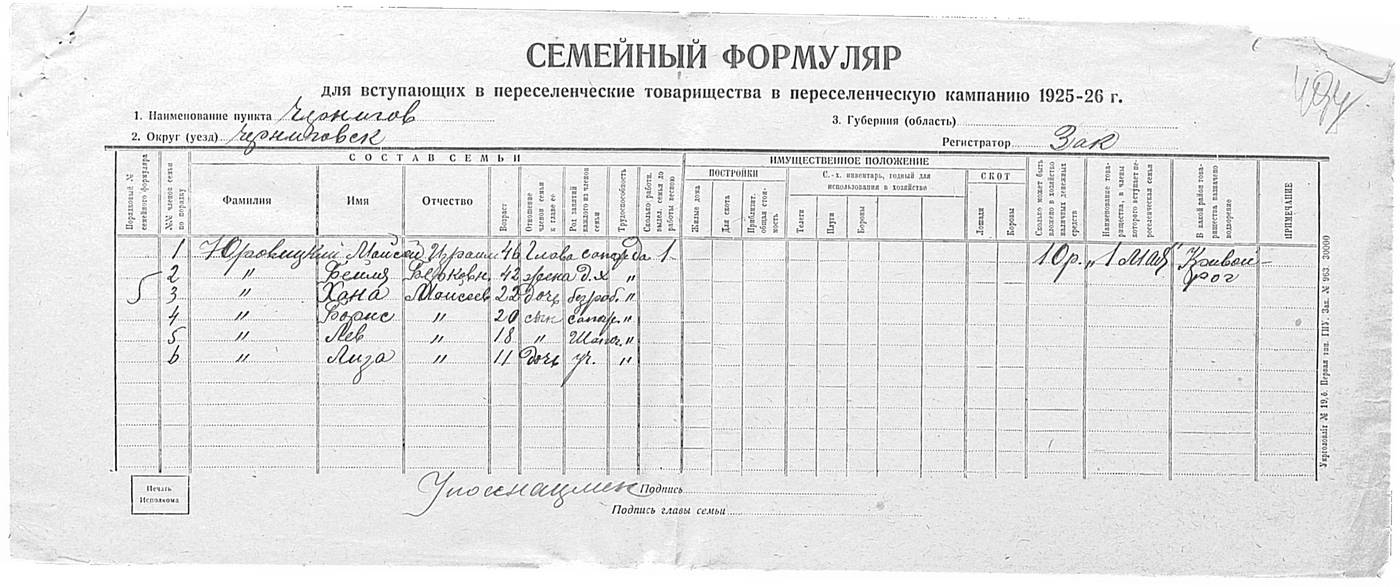 СЕМЕЙНЫЙ ФОРМУЛЯР
для вступающих в переселенческие товарищества в переселенческую кампанию 1925-26 г.
1. Наименование пункта Чернигов
3. Губерния (область)
2. Округ (уезд) Черниговск
Регистратор Зак
Порядковый № семейного формуляра
№№ членов семьи по порядку
СОСТАВ СЕМЬИ
Фамилия
Имя
Отчество
Возраст
Отношение членов семьи к главе ее
Род занятий каждого из членов семьи
Трудоспособность
Сколько работн. выдел. семьи до работы весною
ИМУЩЕСТВЕННОЕ ПОЛОЖЕНИЕ
ПОСТРОЙКИ
Жилые дома
Для скота
Приблизит. общая стоимость
С.-х. инвентарь, годный для использования в хозяйстве
Телеги
Плуги
Бороны
СКОТ
Лошади
Коровы
Сколько может быть вложено в хозяйство наличных денежных средств
Наименование товарищества, в члены которого вступает переселенческая семья
В какой район товарищества назначено водворение
ПРИМЕЧАНИЕ
1 Юровицкий Моисей Израил 46 Глова сапож да 1 10р. „1 Мая" Кривой рог
5
2 " Бейля Берковн. 42 жена д.х "
3 " Хана Моисеев 22 дочь безраб. "
4 " Борис " 20 сын сапож. "
5 " Лев " 18 " Шапоч. "
6 " Лиза " 11 дочь уч. "
Печать Исполкома
Подпись
Подпись главы семьи
Укрголовліт № 19,6. Первая тип. ГПУ. Зак. № 963. 30000